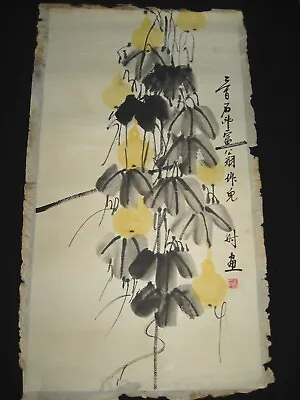 三百石印富翁作兒時畫